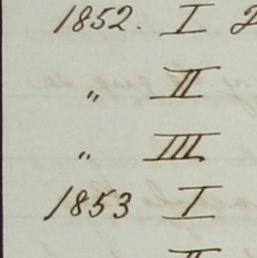 1852. I 2
„ II
„ III
1853 I
II